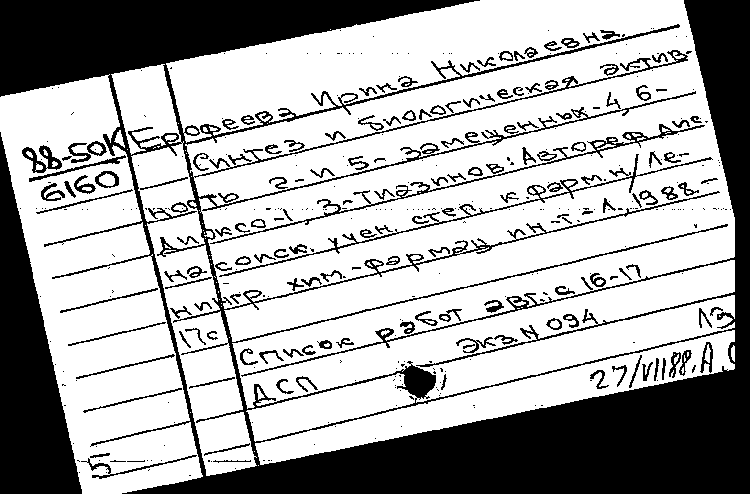 88-50К
6160
Ерофеева Ирина Николаевна.
Синтез и биологическая актив-
ность 2- и 5- замещенных-4,6-
диоксо-1,3-тиазинов: Автореф. дис.
на соиск. учен. степ. к.фарм.н./Ле-
нингр. хим.-фармац. ин-т.-Л., 1988.-
17с
Список работ авт.: с 16-17
ДСП Экз N 094.
13
27/VII88.А.
5